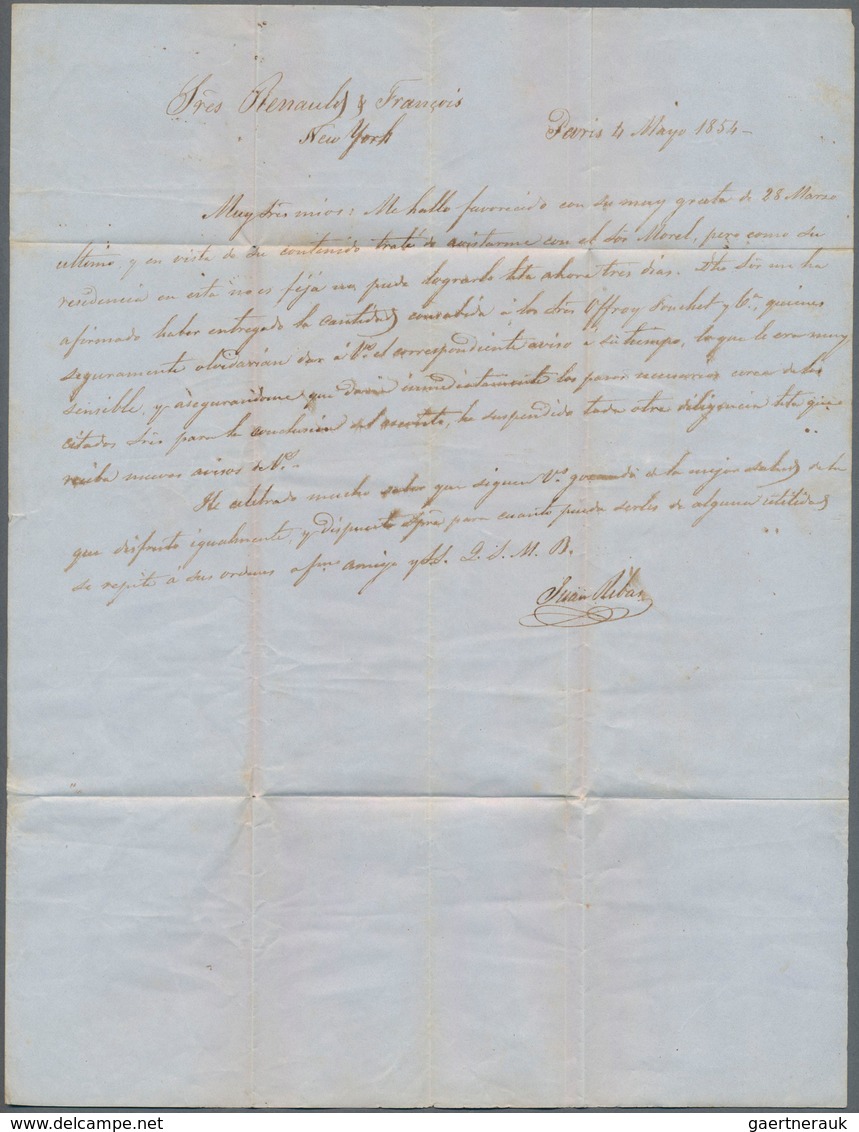 Sres Renauld & François
New York
Paris 4 Mayo 1854-
Muy Sres mios: Me hallo favorecido con su muy grata de 28 Marzo
ultimo, y en vista de su contenido traté de avistarme con el Sor Morel, pero como su
residencia en esta no es fija no pude lograrlo hta ahora tres dias. Dho Sor me ha
afirmado haber entregado la cantidad consabida á los Sres Offroy Pouchet y Ca, quienes
seguramente olvidarian dar á Vs el correspondiente aviso a su tiempo, lo que le era muy
sensible, y asegurandome que daria inmediatamente los pasos necesarios cerca de los
citados Sres para la conclusion del asunto, he suspendido toda otra diligencia hta que
reciba nuevos avisos de Vs.
He celebrado mucho saber que siguen Vs gozando de la mejor salud, de la
que disfruto igualmente, y dispuesto spre para cuanto pueda serles de alguna utilidad
se repite á sus ordenes afmo amigo y S.S. Q. S. M. B.
Juan Ribas
gaertnerauk